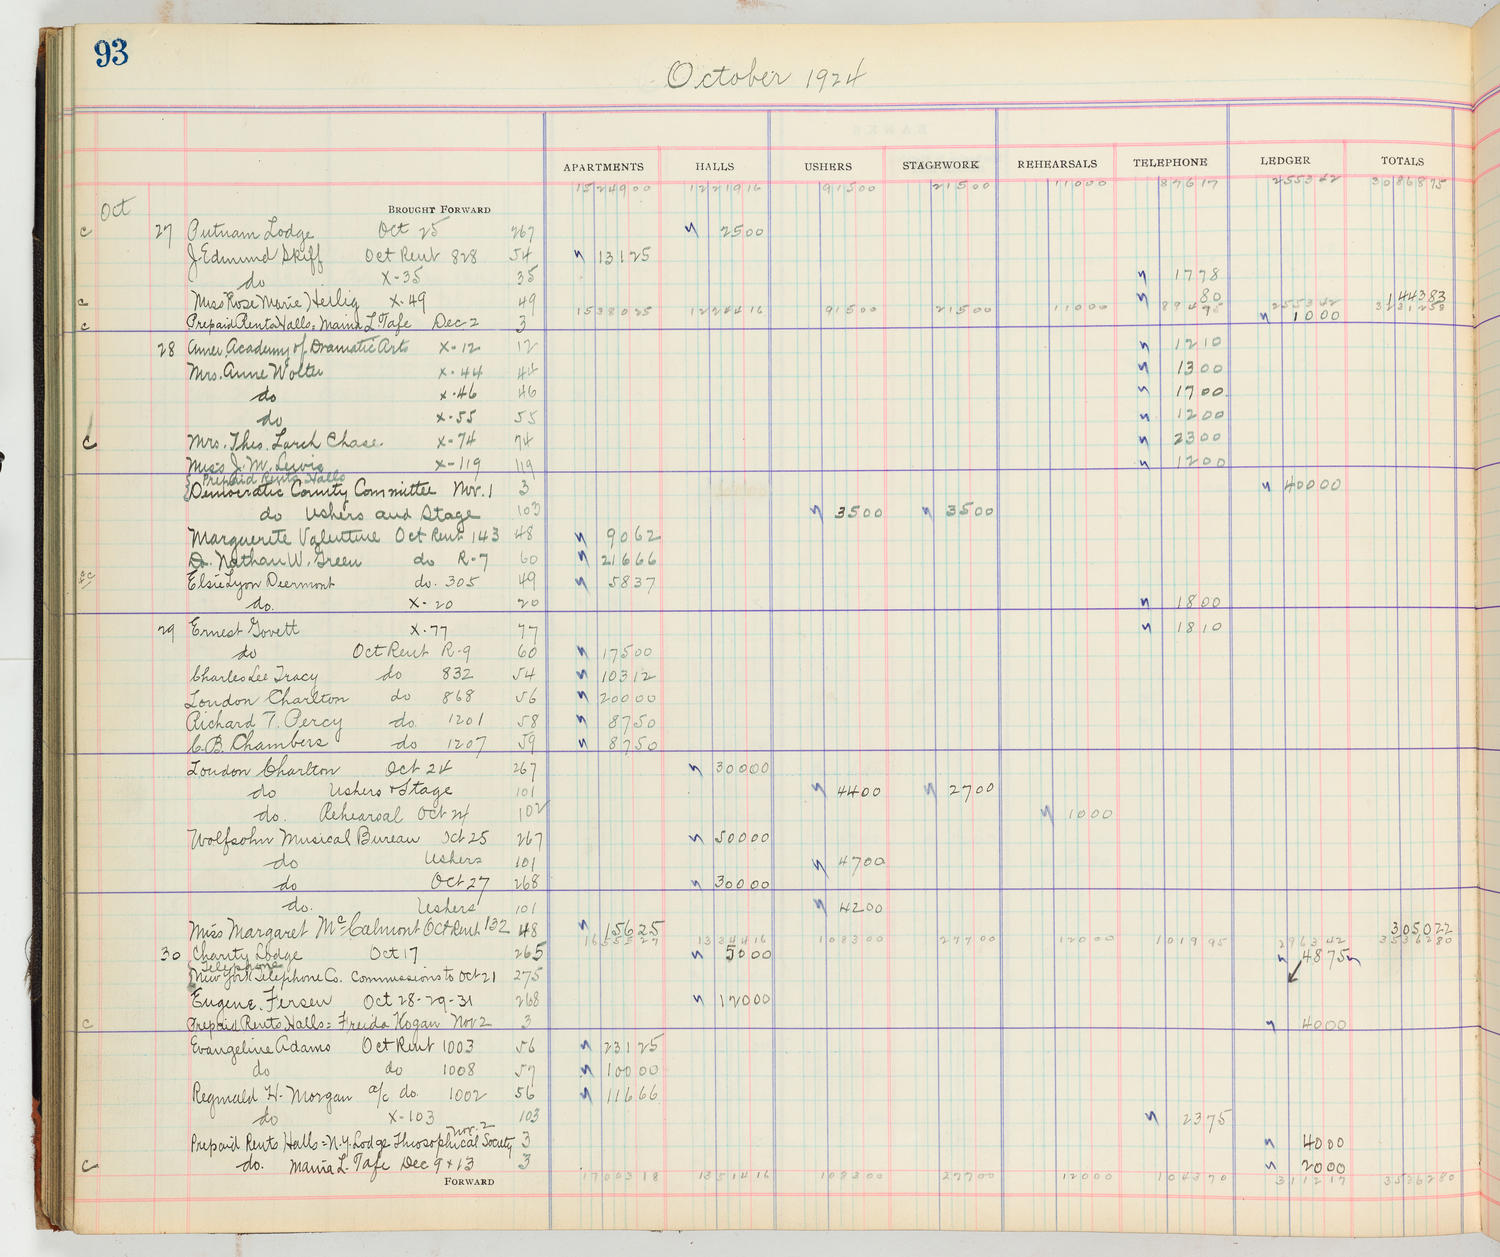 93
October 1924
APARTMENTS HALLS USHERS STAGEWORK REHEARSALS TELEPHONE LEDGER TOTALS
Oct BROUGHT FORWARD 1524900 1221916 91500 21500 11000 87617 255342 3086875
c 27 Putnam Lodge Oct 25 267 2500
J Edmund Skiff Oct Rent 828 54 13125
do X-35 35 1778
c Miss Rose Marie Heilig X-49 49 80 144383
1538025 1224416 91500 21500 11000 89475 255342 3231258
c Prepaid Rents Halls: Maina L Tafe Dec 2 3 1000
28 Amer Academy of Dramatic Arts X-12 12 1210
Mrs. Anne Wolter X-44 44 1300
do X-46 46 1700
do X-55 55 1200
c Mrs. Thes. Larch Chase. X-74 74 2300
Miss J. M. Lewis X-119 119 1200
Prepaid Rents Halls
Democratic County Committee Nov. 1 3 40000
do Ushers and Stage 103 3500 3500
Marguerite Valentine Oct Rent 143 48 9062
Dr. Nathan W. Green do R-7 60 21666
Elsie Lyon Deermont do. 305 49 5837
do. X-20 20 1800
29 Ernest Govett X-77 77 1810
do Oct Rent R-9 60 17500
Charles Lee Tracy do 832 54 10312
Loudon Charlton do 868 56 20000
Richard T. Percy do. 1201 58 8750
C. B. Chambers do 1207 59 8750
Loudon Charlton Oct 24 267 30000
do Ushers + Stage 101 4400 2700
do. Rehearsal Oct 24 102 1000
Wolfsohn Musical Bureau Oct 25 267 50000
do Ushers 101 4700
do Oct 27 268 30000
do. Ushers 101 4200
Miss Margaret McCalmont Oct Rent 132 48 15625 305022
1655527 1334416 108300 27700 12000 101995 296342 3536280
30 Charity Lodge Oct 17 265 5000
Telephone
New York Telephone Co. Commissions to Oct 21 275 4875
Eugene. Fersen Oct 28-29-31 268 12000
c Prepaid Rents Halls: Freida Kogan Nov 2 3 4000
Evangeline Adams Oct Rent 1003 56 23125
do do 1008 57 10000
Reginald H. Morgan a/c do. 1002 56 11666
do X-103 103 2375
Nov. 2
Prepaid Rents Halls = N.Y. Lodge Theosophical Society 3 4000
c do. Maina L. Tafe Dec 9 + 13 3 2000
FORWARD 1700318 1351416 108300 27700 12000 104370 311217 3536280